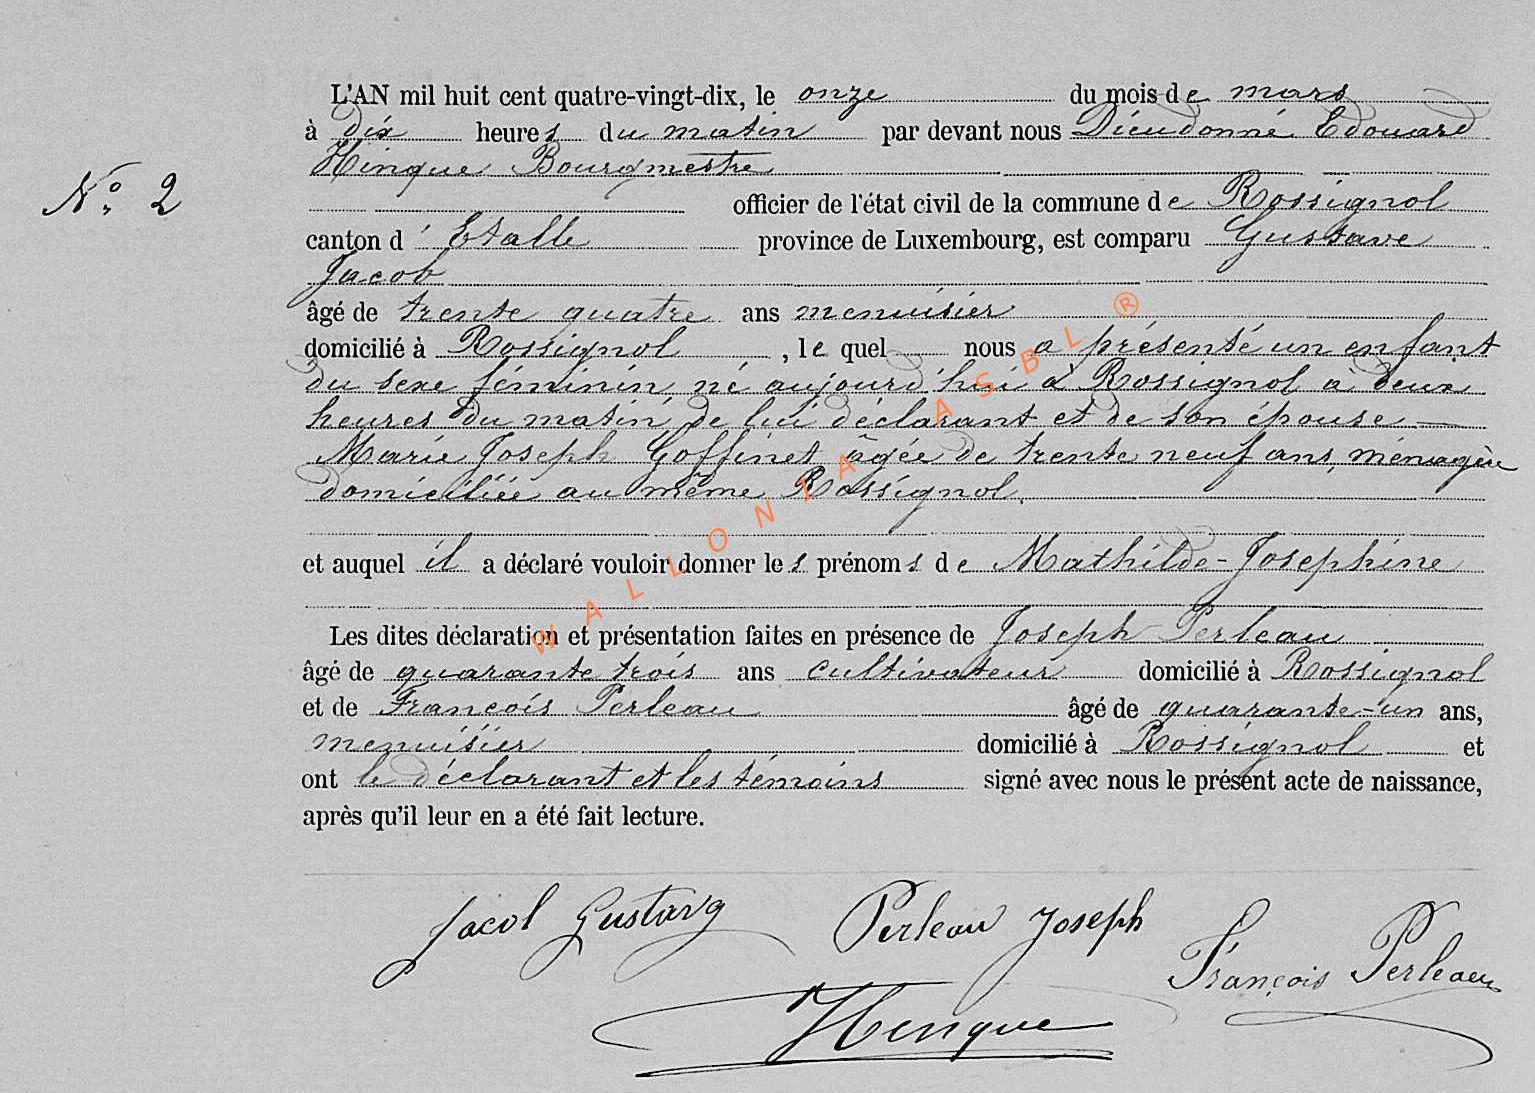 L'AN mil huit cent quatre-vingt-dix, le onze du mois de mars
à dix heures du matin par devant nous Dieudonné Edouard
Hinque Bourgmestre
N° 2
officier de l'état civil de la commune de Rossignol
canton d'Etalle province de Luxembourg, est comparu Gustave
Jacob
âgé de trente quatre ans menuisier
domicilié à Rossignol, le quel nous a présenté un enfant
du sexe féminin, né aujourd'hui à Rossignol à deux
heures du matin, de lui déclarant et de son épouse
Marie Joseph Goffinet âgée de trente neuf ans, ménagère
domiciliée au même Rossignol.
et auquel il a déclaré vouloir donner les prénoms de Mathilde-Josephine
Les dites déclaration et présentation faites en présence de Joseph Perleau
âgé de quarante trois ans cultivateur domicilié à Rossignol
et de François Perleau âgé de quarante-un ans,
menuisier domicilié à Rossignol et
ont le déclarant et les témoins signé avec nous le présent acte de naissance,
après qu'il leur en a été fait lecture.
Jacob Gustave Perleau Joseph
François Perleau
Hinque
WALLONIA ASBL ®